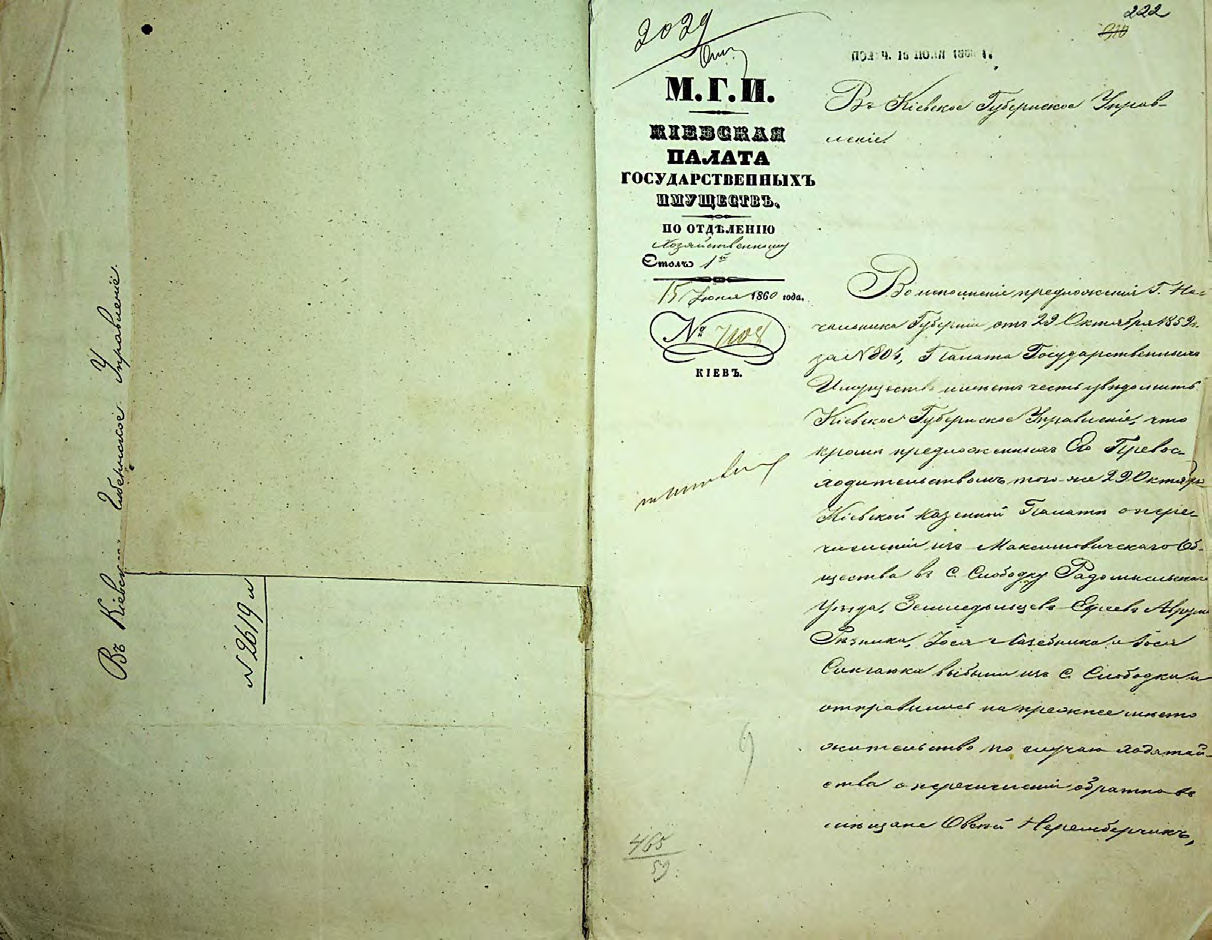 Въ Кіевск Губернское Управленіе.
№ 2619 и
2029
222
М.Г.И.
КІЕВСКАЯ
ПАЛАТА
ГОСУДАРСТВЕННЫХЪ
ИМУЩЕСТВЪ.
ПО ОТДѢЛЕНІЮ
Хозяйственному
Столъ 1й
15 Іюня 1860 года.
№ 7108
КІЕВЪ.
Въ Кіевское Губернское Управ-
леніе.
Во исполненіе предложенія Г. На-
чальника Губерніи отъ 29 Октября 1859 г.
за № 804, Палата Государственныхъ
Имуществъ имѣетъ честь увѣдомить
Кіевское Губернское Управленіе, что
кромѣ предложенныхъ Его Превос-
ходительствомъ того-же 29 Октября
Кіевской Казенной Палаты о пере-
численіи изъ Максимовичскаго Об-
щества въ с. Слободку Радомысльскаго
Уѣзда, Земледѣльцевъ Евреевъ Аврума
Рѣзника, Іося и Іося
выбыли изъ с. Слободки и
отправились на прежнее мѣсто
жительство по случаю ходатай-
ства о перечисленіи обратно въ
мѣщане Овсей
465
59.